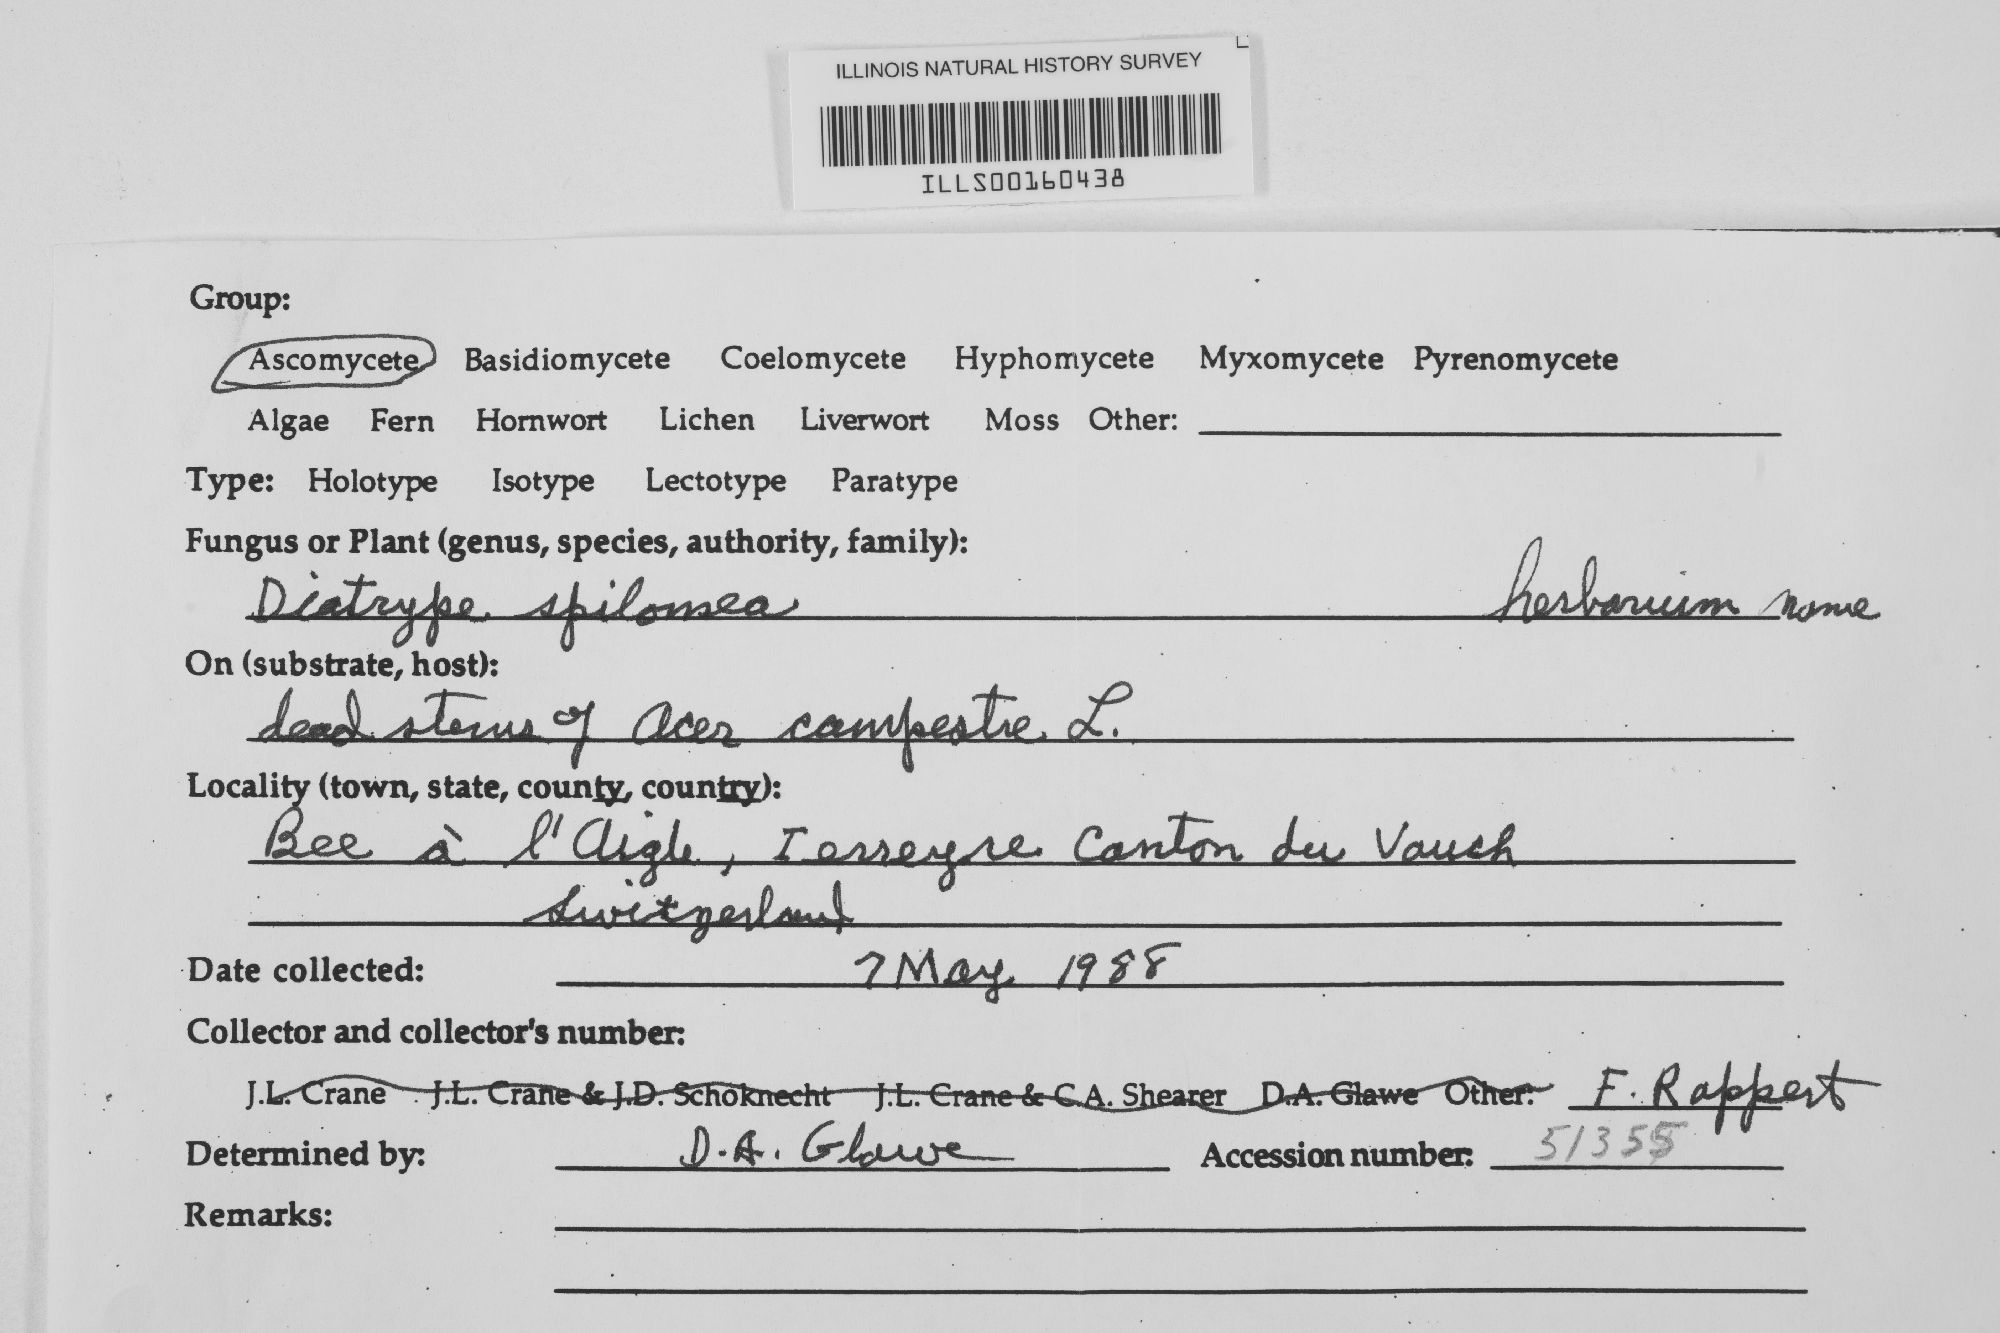 ILLINOIS NATURAL HISTORY SURVEY
ILLS00160438
Group:
Ascomycete Basidiomycete Coelomycete Hyphomycete Myxomycete Pyrenomycete
Algae Fern Hornwort Lichen Liverwort Moss Other:
Type: Holotype Isotype Lectotype Paratype
Fungus or Plant (genus, species, authority, family):
Diatrype spilomea herbarium name
On (substrate, host):
dead stems of Acer campestre L.
Locality (town, state, county, country):
Bee à l'Aigle, Canton du
Switzerland
Date collected: 7 May 1988
Collector and collector's number:
J.L. Crane J.L. Crane & J.D. Schoknecht J.L. Crane & C.A. Shearer D.A. Glawe Other: F. Rappert
Determined by: D.A. Glawe Accession number: 51355
Remarks: